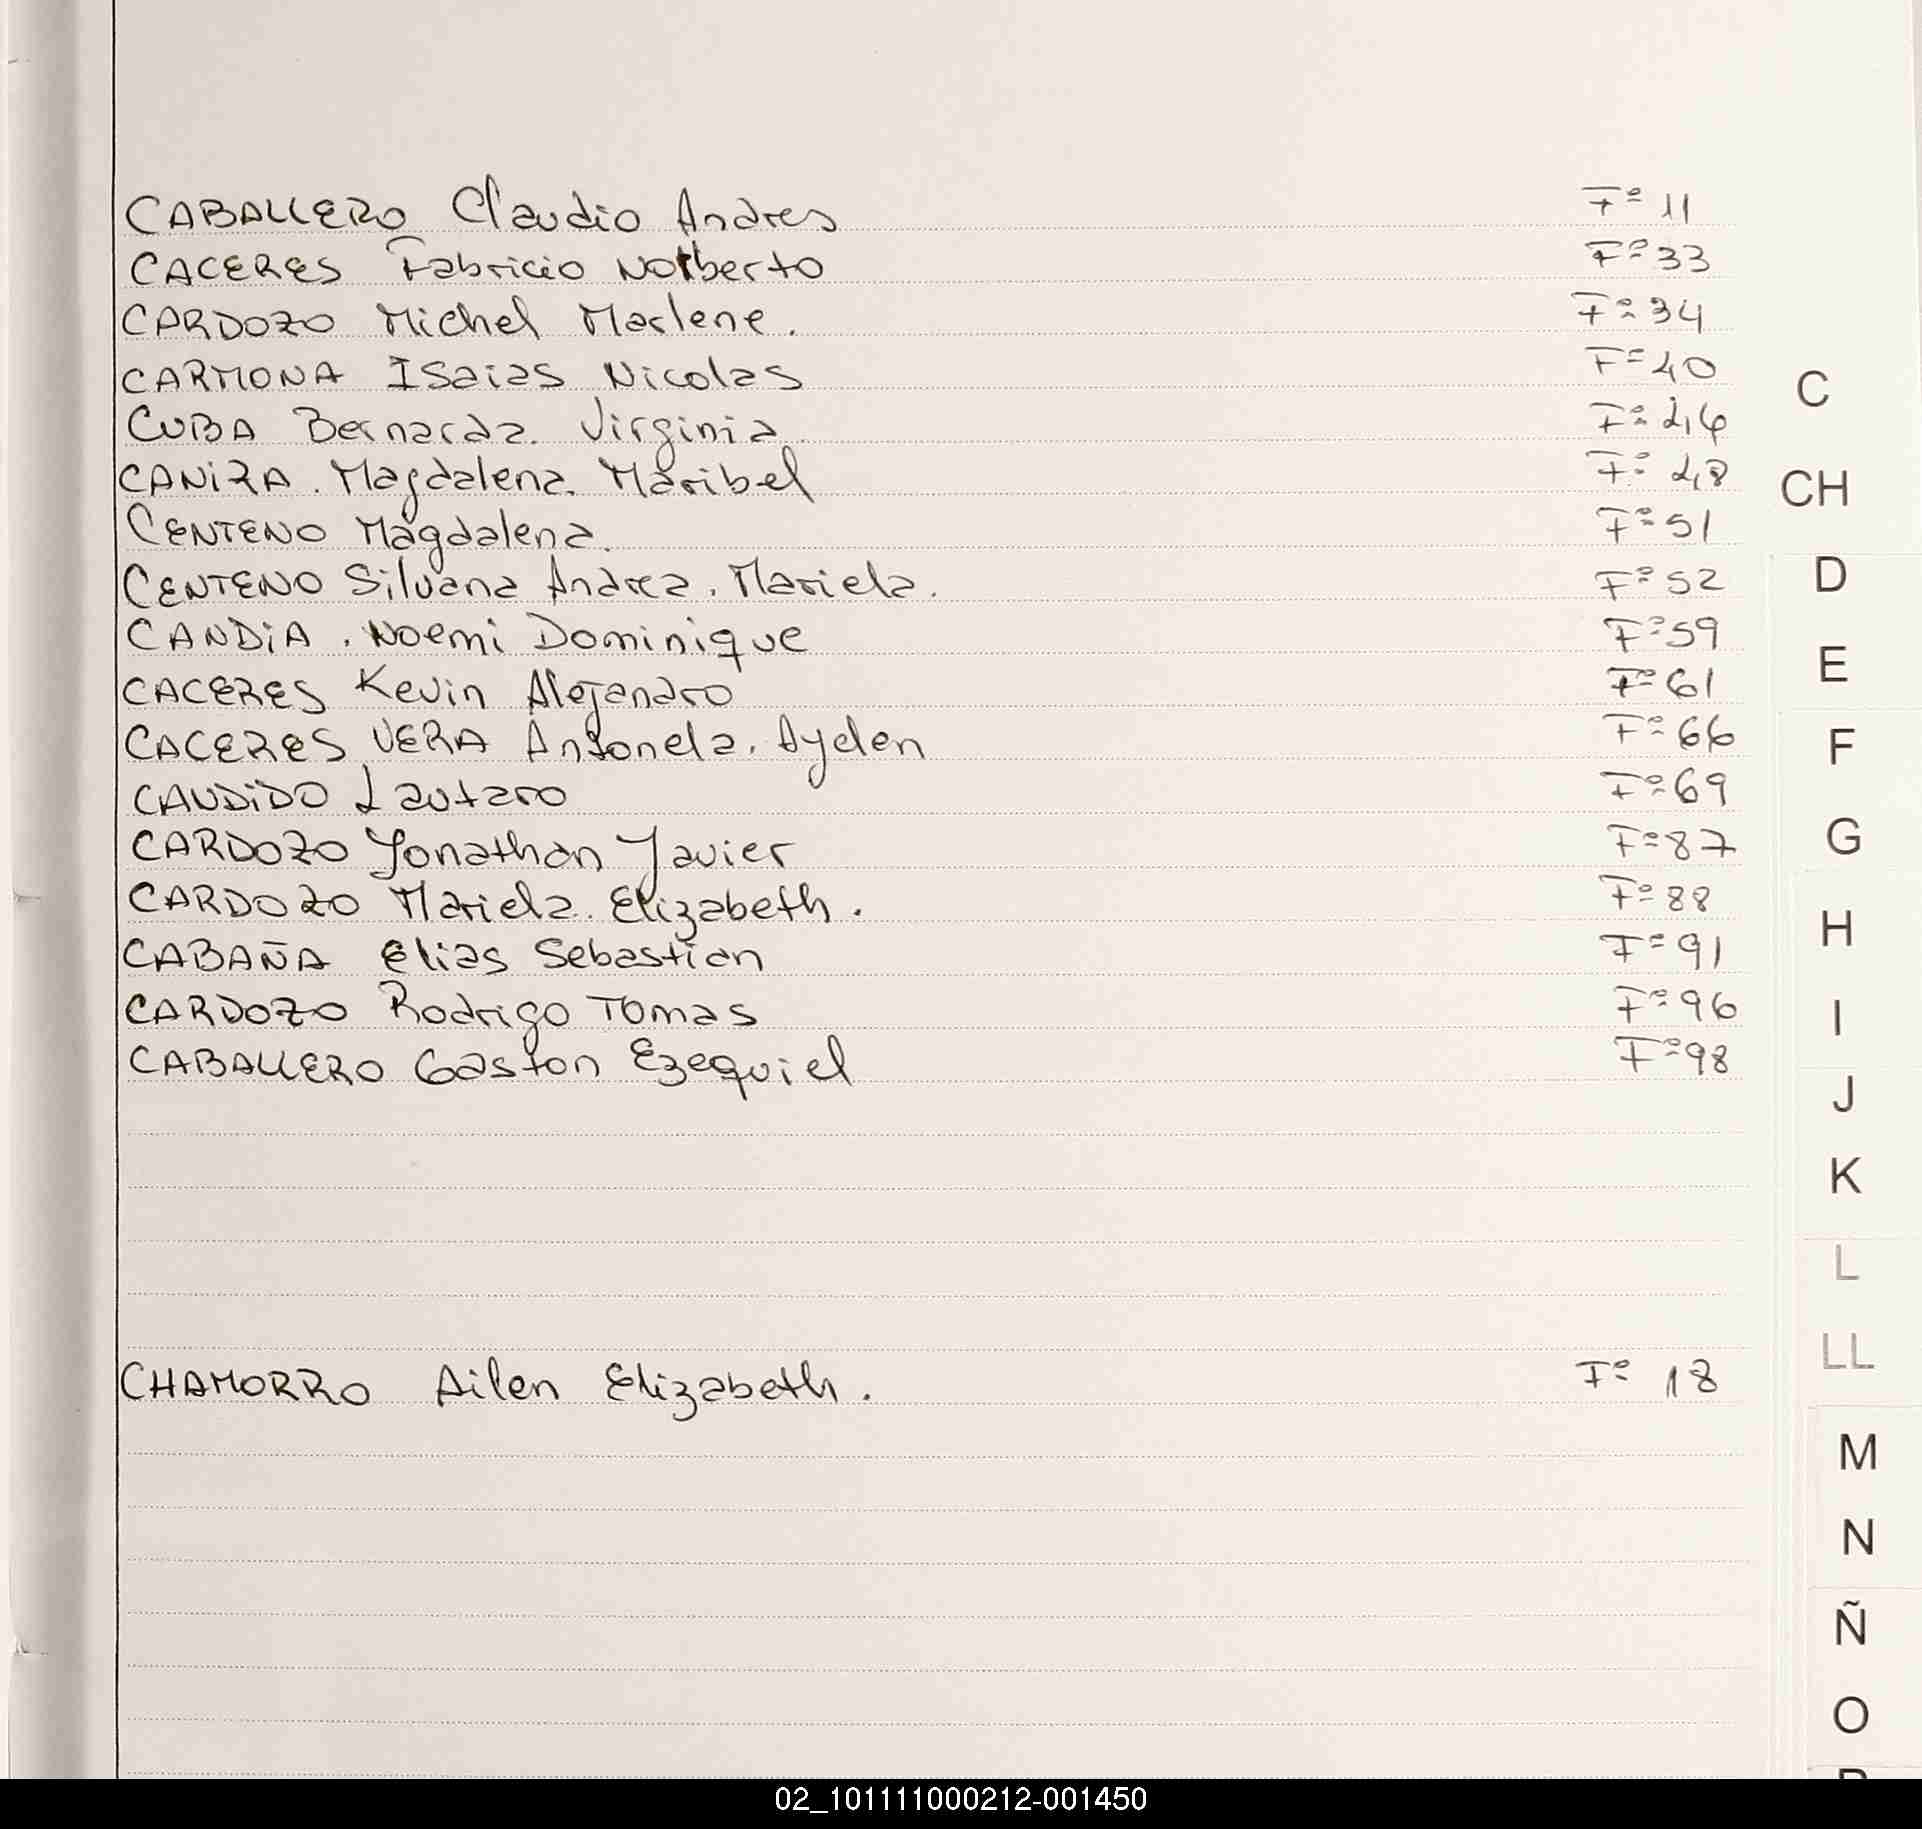 CABALLERO Claudio Andres Fº 11
CACERES Fabricio Norberto Fº 33
CARDOZO Michel Marlene. Fº 34
CARMONA Isaias Nicolas Fº 40
CUBA Bernarda Virginia Fº 46
CANIZA. Magdalena Maribel Fº 48
CENTENO Magdalena. Fº 51
CENTENO Silvana Andrea. Mariela. Fº 52
CANDIA. Noemi Dominique Fº 59
CACERES Kevin Alejandro Fº 61
CACERES VERA Antonela. Ayelen Fº 66
CANDIDO Lautaro Fº 69
CARDOZO Jonathan Javier Fº 87
CARDOZO Mariela Elizabeth. Fº 88
CABAÑA Elias Sebastian Fº 91
CARDOZO Rodrigo Tomas Fº 96
CABALLERO Gaston Ezequiel Fº 98
CHAMORRO Ailen Elizabeth. Fº 18
C
CH
D
E
F
G
H
I
J
K
L
LL
M
N
Ñ
O
02_101111000212-001450